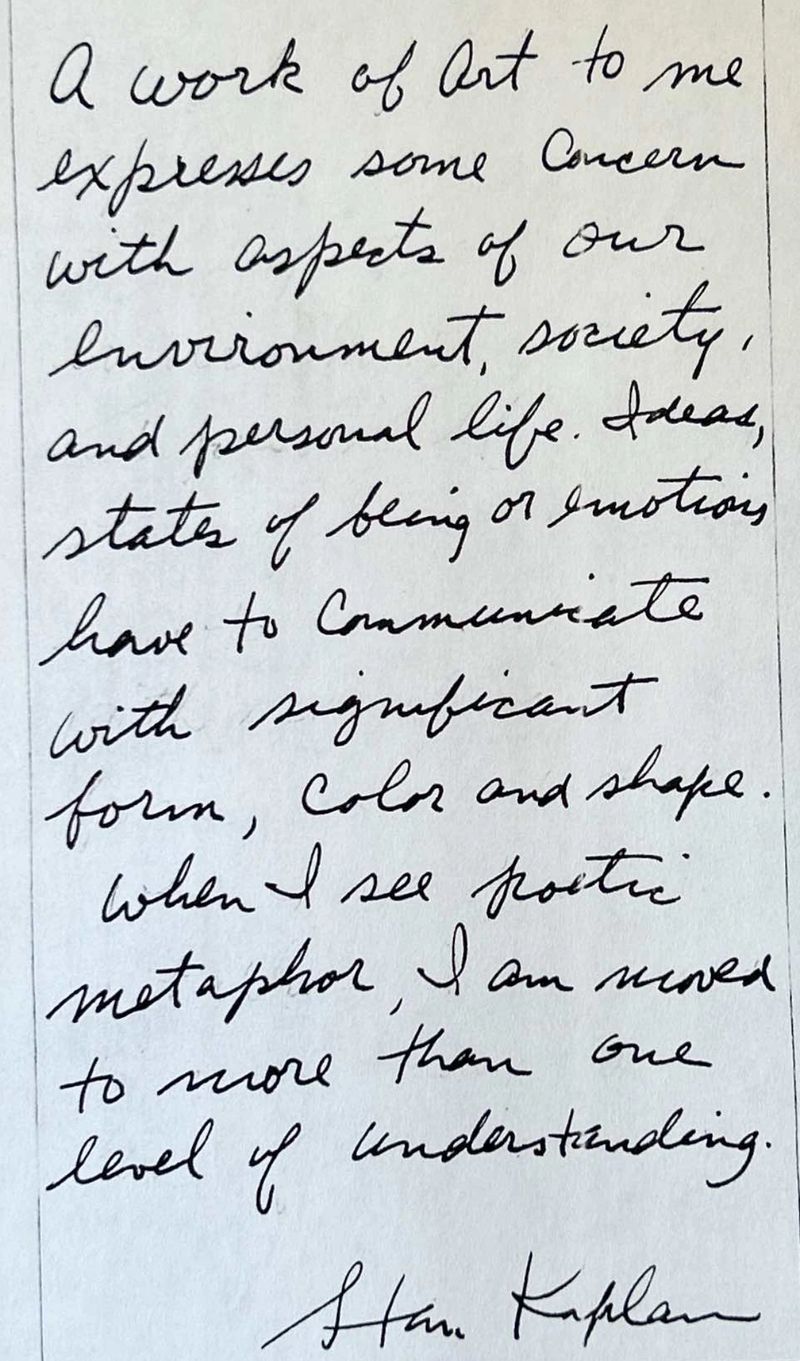 A work of Art to me
expresses some Concern
with aspects of our
environment, society,
and personal life. Ideas,
states of being or emotions
have to Communicate
with significant
form, Color and shape.
When I see poetic
metaphor, I am moved
to more than one
level of understanding.
Stan Kaplan